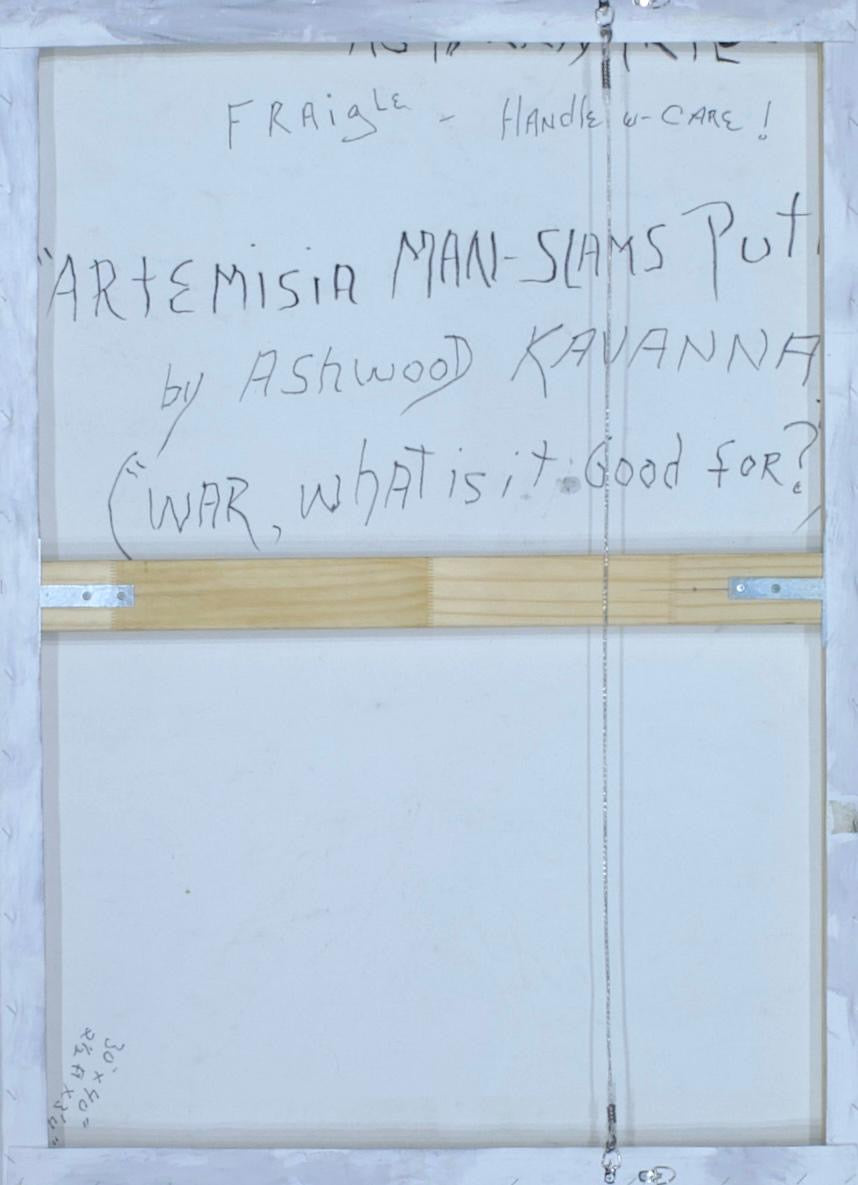 FRAigLE - HANdlE w- CARE!
"ARtEMisiA MAN-SLAMS Put
by AShwooD KAVANNA
("WAR, whAT is it Good foR?
30" x 40"
2½ ft x